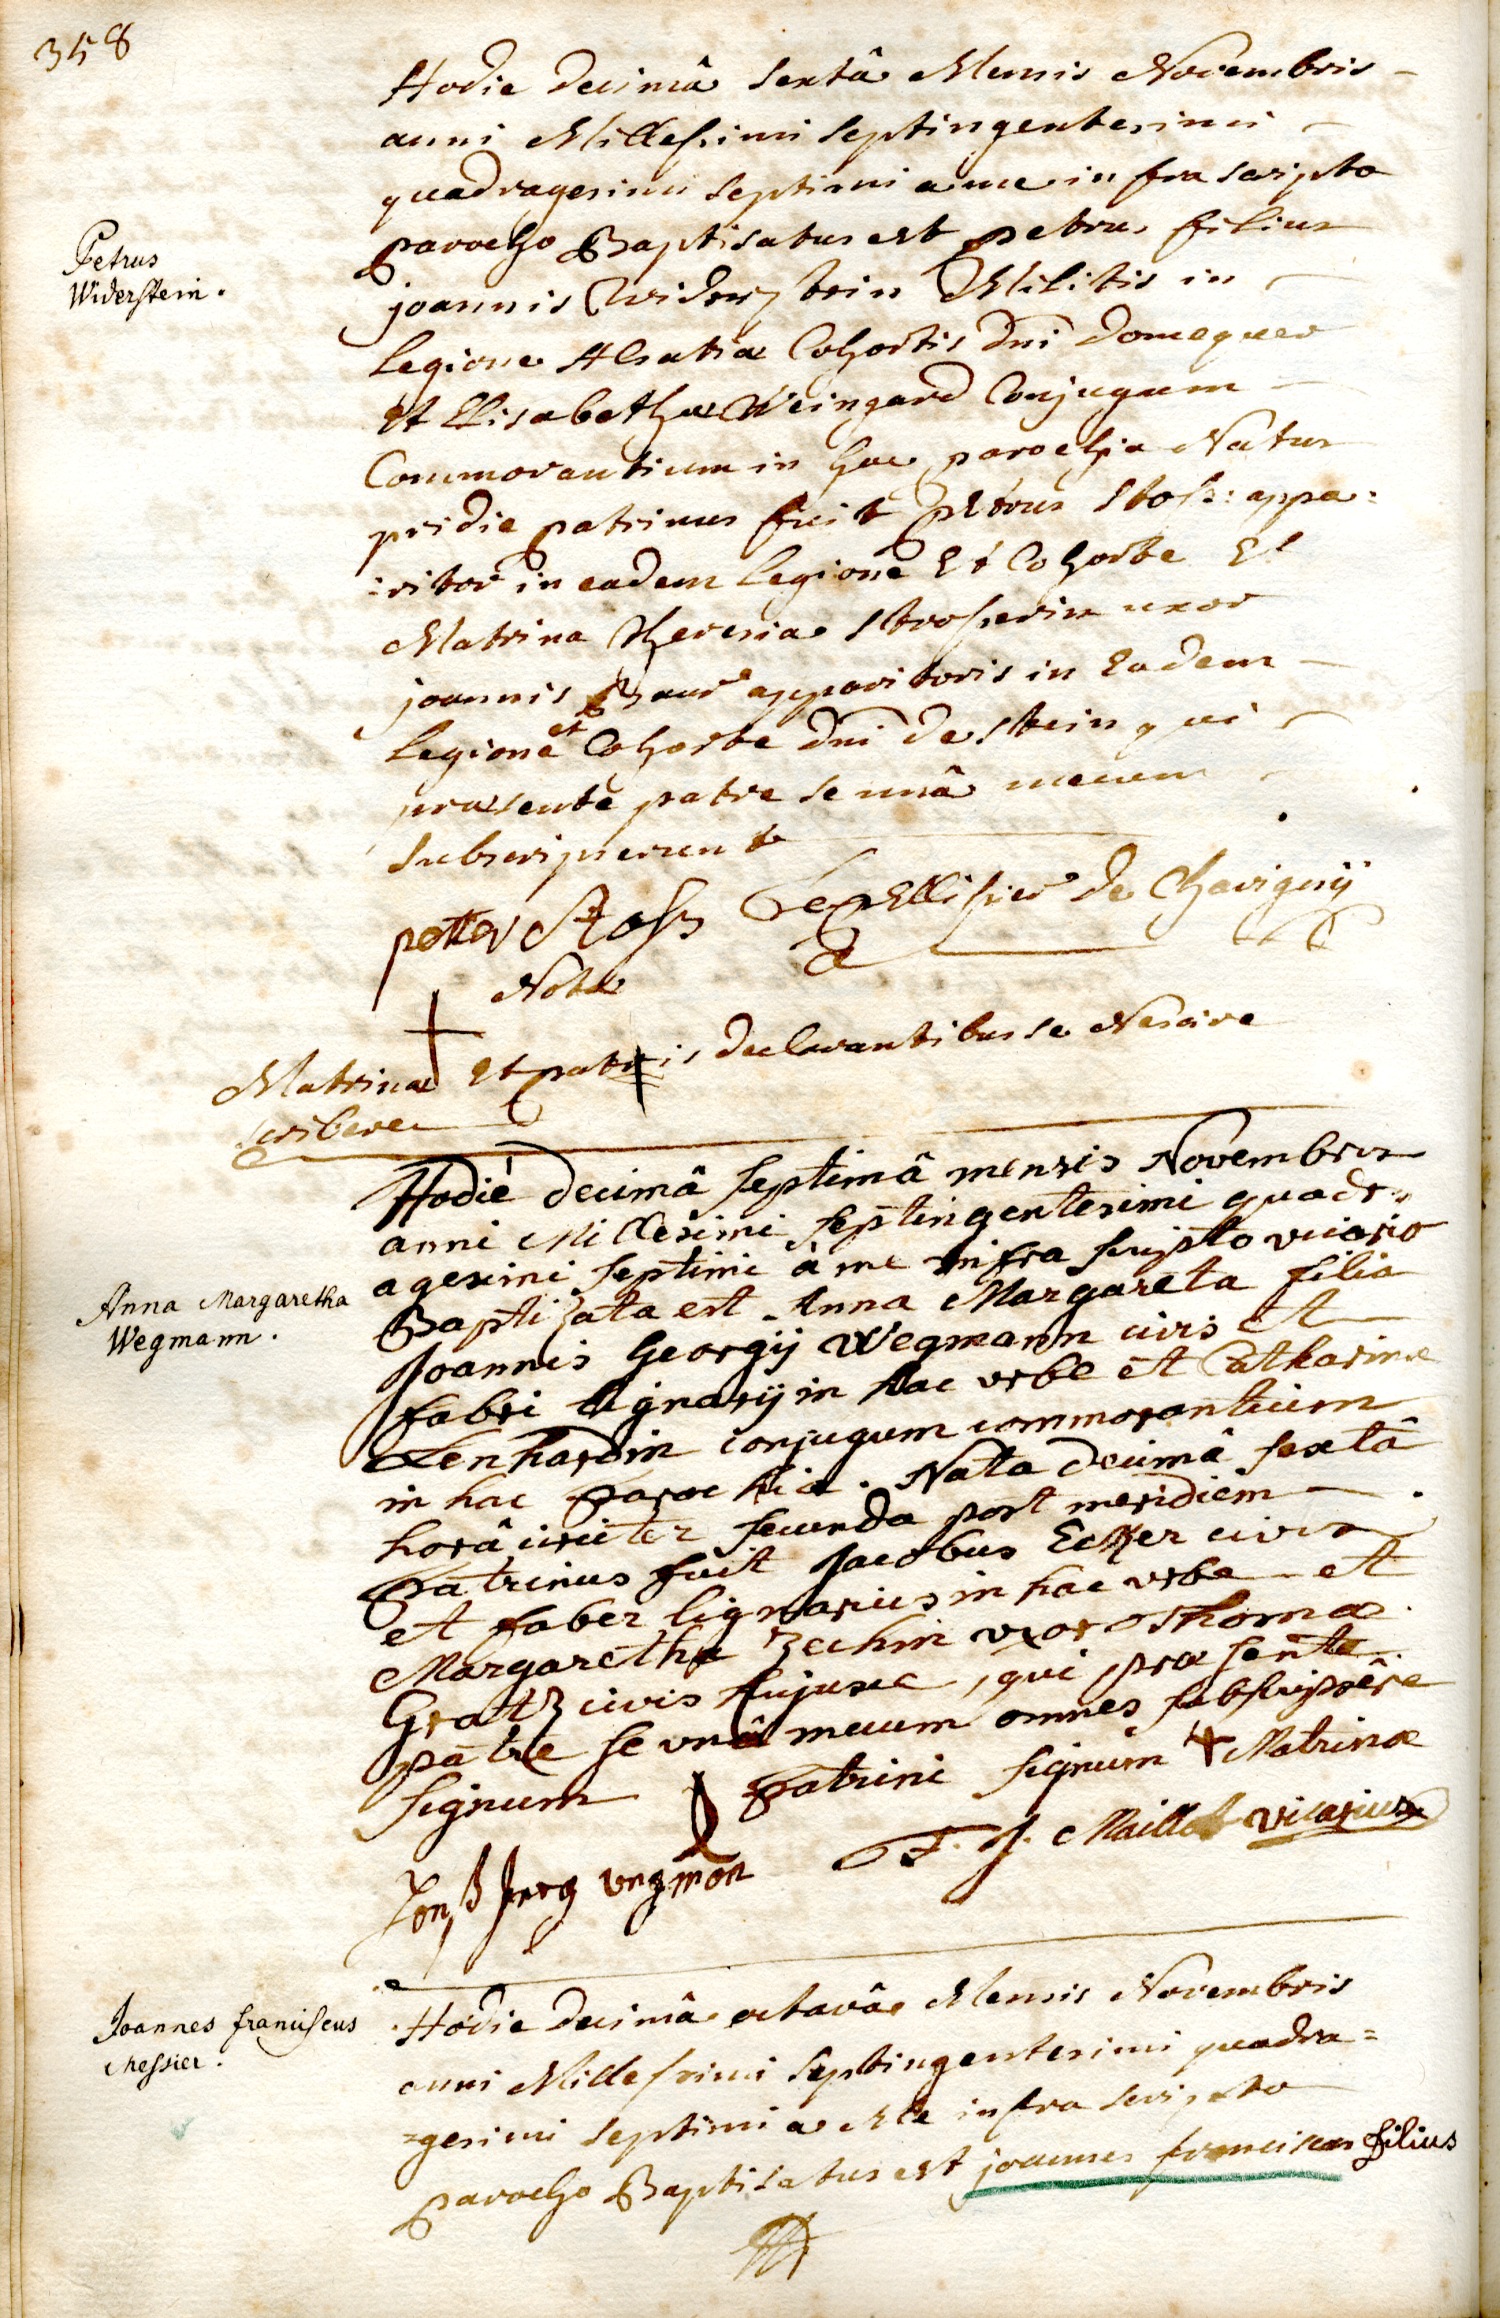 358
Hodie decimâ sextâ Mensis Novembris
anni Millesimi Septingentesimi
quadragesimi septimi a me infra scripto
parocho Baptisatus est petrus filius
Petrus
Widerstein.
joannis Widerstein Militis in
legione Alsatiæ Cohortis Dni Domequer
Et Elisabethæ Weingard Conjugum
Commorantium in hac parochia Natus
pridie patrinus fuit petrus Stoss: appa:
:ritor in eadem legione Et Cohorte Et
Matrina Theresia Stroserin uxor
joannis Baur apparitoris in Eadem
legione et Cohorte Dni De Stein qui
præsente patre se unâ mecum
subscripserunt
petter Stoss LepEllisier De Chavignij
Notæ
Matrinæ Et patris declarantibus se Nescire
scribere
Hodiè decimâ septimâ mensis Novembris
anni Millesimi septingentesimi quadr-
agesimi septimi à me infra scripto vicario
Baptizata est Anna Margareta filia
Anna Margaretha
Wegmann.
Joannis Georgij Wegmann civis et
fabri lignarij in hac vrbe et Catharinæ
Lenhardin conjugum commorantium
in hac parochia. Nata decimâ sextâ
horâ circiter secunda post meridiem
patrinus fuit Jacobus Ecker civis
et faber lignarius in hac vrbe et
Margaretha Zechin vxor Thomæ
Gratz civis hujusce, qui præsente
patre se vnâ mecum omnes subscripsêre
signum patrini signum Matrinæ
F. J. Maillot vicarius
Joannes franciscus
Messier.
Hodie decimâ octavâ Mensis Novembris
anni Millesimi Septingentesimi quadra=
=gesimi septimi a Me infra scripto
parocho Baptisatus est joannes franciscus filius